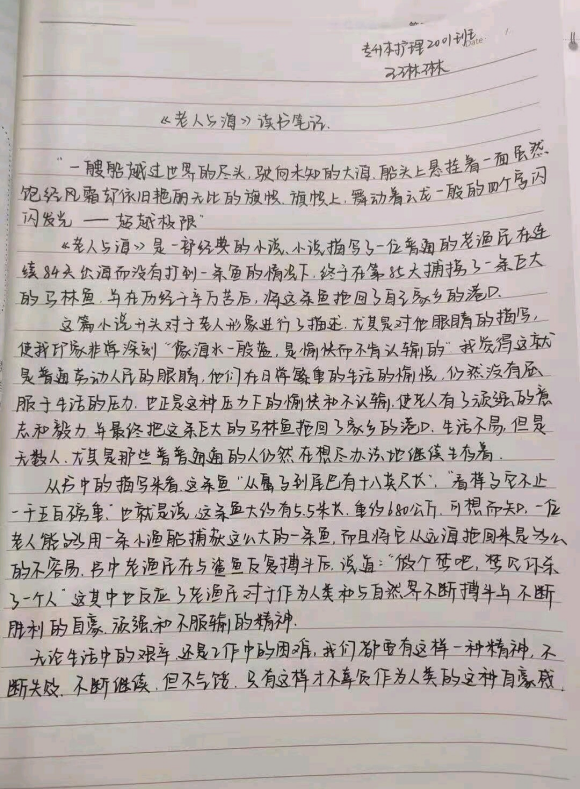 专升本护理2001班
Date
王琳琳
《老人与海》读书笔记.
“一艘船越过世界的尽头,驶向未知的大海,船头上悬挂着一面虽然
饱经风霜却依旧艳丽无比的旗帜,旗帜上,舞动着云龙一般的四个字闪
闪发光——超越极限”
《老人与海》是一部经典的小说,小说描写了一位普通的老渔民在连
续84天出海而没有打到一条鱼的情况下,终于在第85天捕捞了一条巨大
的马林鱼,并在历经千辛万苦后,将这条鱼拖回了自己家乡的港口.
这篇小说开头对于老人形象进行了描述,尤其是对他眼睛的描写,
使我印象非常深刻“像海水一般蓝,是愉快而不肯认输的”我觉得这就
是普通劳动人民的眼睛,他们在日常繁重的生活的愉悦,仍然没有屈
服于生活的压力,也正是这种压力下的愉快和不认输,使老人有了顽强的意
志和毅力,并最终把这条巨大的马林鱼拖回了家乡的港口.生活不易,但是
无数人,尤其是那些普普通通的人仍然在想尽办法地继续生存着.
从书中的描写来看,这条鱼“从鼻子到尾巴有十八英尺长”,“看样子它不止
一千五百磅重”也就是说,这条鱼大约有5.5米长,重约680公斤,可想而知,一位
老人能够用一条小渔船捕获这么大的一条鱼,而且将它从远海拖回来是多么
的不容易,书中老渔民在与鲨鱼反复搏斗后,说道:“做个梦吧,梦见你杀
了一个人”这其中也反应了老渔民对于作为人类和与自然界不断搏斗与不断
胜利的自豪、顽强和不服输的精神.
无论生活中的艰辛还是工作中的困难,我们都要有这样一种精神,不
断失败,不断继续,但不气馁,只有这样才不辜负作为人类的这种自豪感.